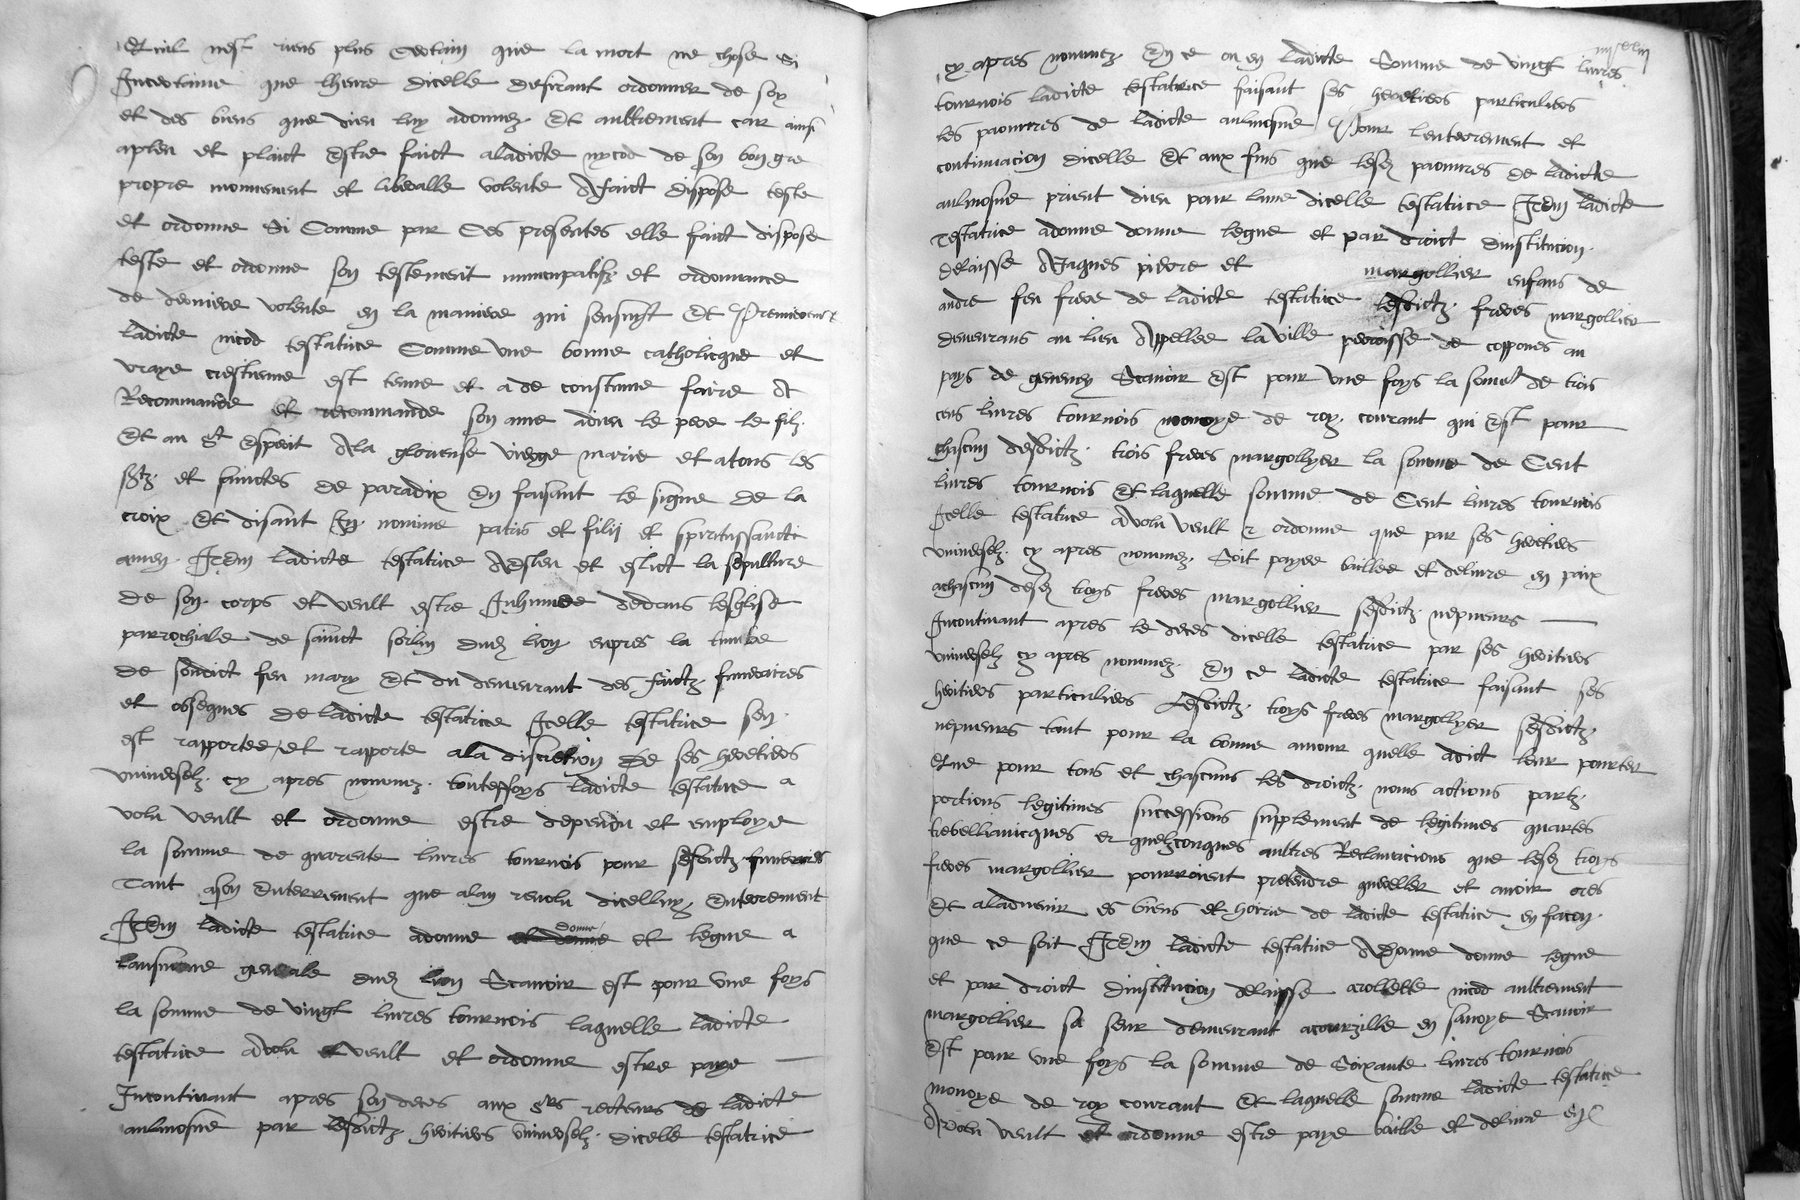 Et nil nest riens plus Certain que la mort ne chose Si
Incertaine que lheure dicelle desirant ordonner de soy
et des biens que dieu luy adonnez Et aultrement car ainsi
apleu et plaict Estre faict aladicte nycod de son bon gre
propre mouvement et liberalle volente A faict dispose teste
et ordonne Si Comme par Ces presentes elle faict dispose
teste et ordonne son testement nuncupatifz et ordonnance
de derniere volente en la maniere qui sensuyt Et Premierement
ladicte nicod testatrice Comme une bonne catholicque et
vraye crestienne est tenue et a de coustume faire A
Recommande et recommande son ame adieu le pere le filz
Et au st Esperit Ala glorieuse vierge marie et atous les
stz et sainctes de paradix En faisant le signe de la
croix Et disant In nomine patris et filii et spiritussancti
amen Item ladicte testatrice A Esleu et eslict la sepulture
de son corps et veult estre Inhumee dedans lesglise
parrochialle de sainct sorlin dud lion enpres la tumbe
de sondict feu mary Et du demeurant des faictz funeraires
et obseques de ladicte testatrice Icelle testatrice sen
est rapportee et rapporte ala discretion de ses heretiers
universelz cy apres nommez touteffoys ladicte testatrice a
volu veult et ordonne estre dependu et employe
la somme de quarente livres tournois pour sesdictz funeraires
Tant ason Enterrement que alan revolu dicelluy Enterrement
Item ladicte testatrice adonne donne et legue a
laulmosne generale dud lion Scavoir est pour une foys
la somme de vingt livres tournois laquelle ladicte
testatrice avolu et veult et ordonne estre paye
Incontinant apres son deces aux srs recteurs de ladicte
aulmosne par lesdictz heritiers universelz dicelle testatrice
cy apres nommez En ce ou en ladicte Somme de vingt livres
tournois ladicte testatrice faisant ses heretiers particuliers
les paouvres de ladicte aulmosne Pour lenterement et
continuacion dicelle Et aux fins que lesd paouvres de ladicte
aulmosne prient dieu pour lame dicelle testatrice Item ladicte
Testatrice adonne donne legue et par droict dinstitucion
delaisse A Jaques pierre et margollier enfans de
andre feu frere de ladicte testatrice lesdictz freres margollier
demeurans au lieu Appellee la ville perroisse de copponex au
pays de genevey Scavoir Est pour une foys la somme de trois
cens livres tournois monoye de roy courant qui Est pour
chascun desdictz trois freres margollyer la somme de Cent
livres tournois Et laquelle somme de Cent livres tournois
Icelle testatrice avolu veult et ordonne que par ses heretiers
universelz cy apres nommez Soit payee baillee et delivre en paix
achascun desd troys freres margollier sesdictz nepveurs
Incontinant apres le deces dicelle testatrice par ses heritiers
universelz cy apres nommez En ce ladicte testatrice faisant ses
heritiers particuliers Lesdictz troys freres margollyer sesdictz
nepveurs tant pour la bonne amour quelle adict leur pourter
que pour tous et chascuns les droictz noms actions partz
portions legitimes successions supplement de legitimes quartes
trebellianicques et quelzconques aultres Reclamacions que lesd troys
freres margollier pourroient pretendre quereller et avoir ores
Et aladvenir es biens et hoirie de ladicte testatrice en facon
que ce soit Item ladicte testatrice A donne donne legue
et par droict dinstitucion delaisse nicod aultrement
margollier sa seur demeurant en savoye Scavoir
Est pour une foys la somme de Soixante livres tournois
monoye de roy courant Et laquelle somme ladicte testatrice
A volu veult et ordonne estre paye baille et delivre en